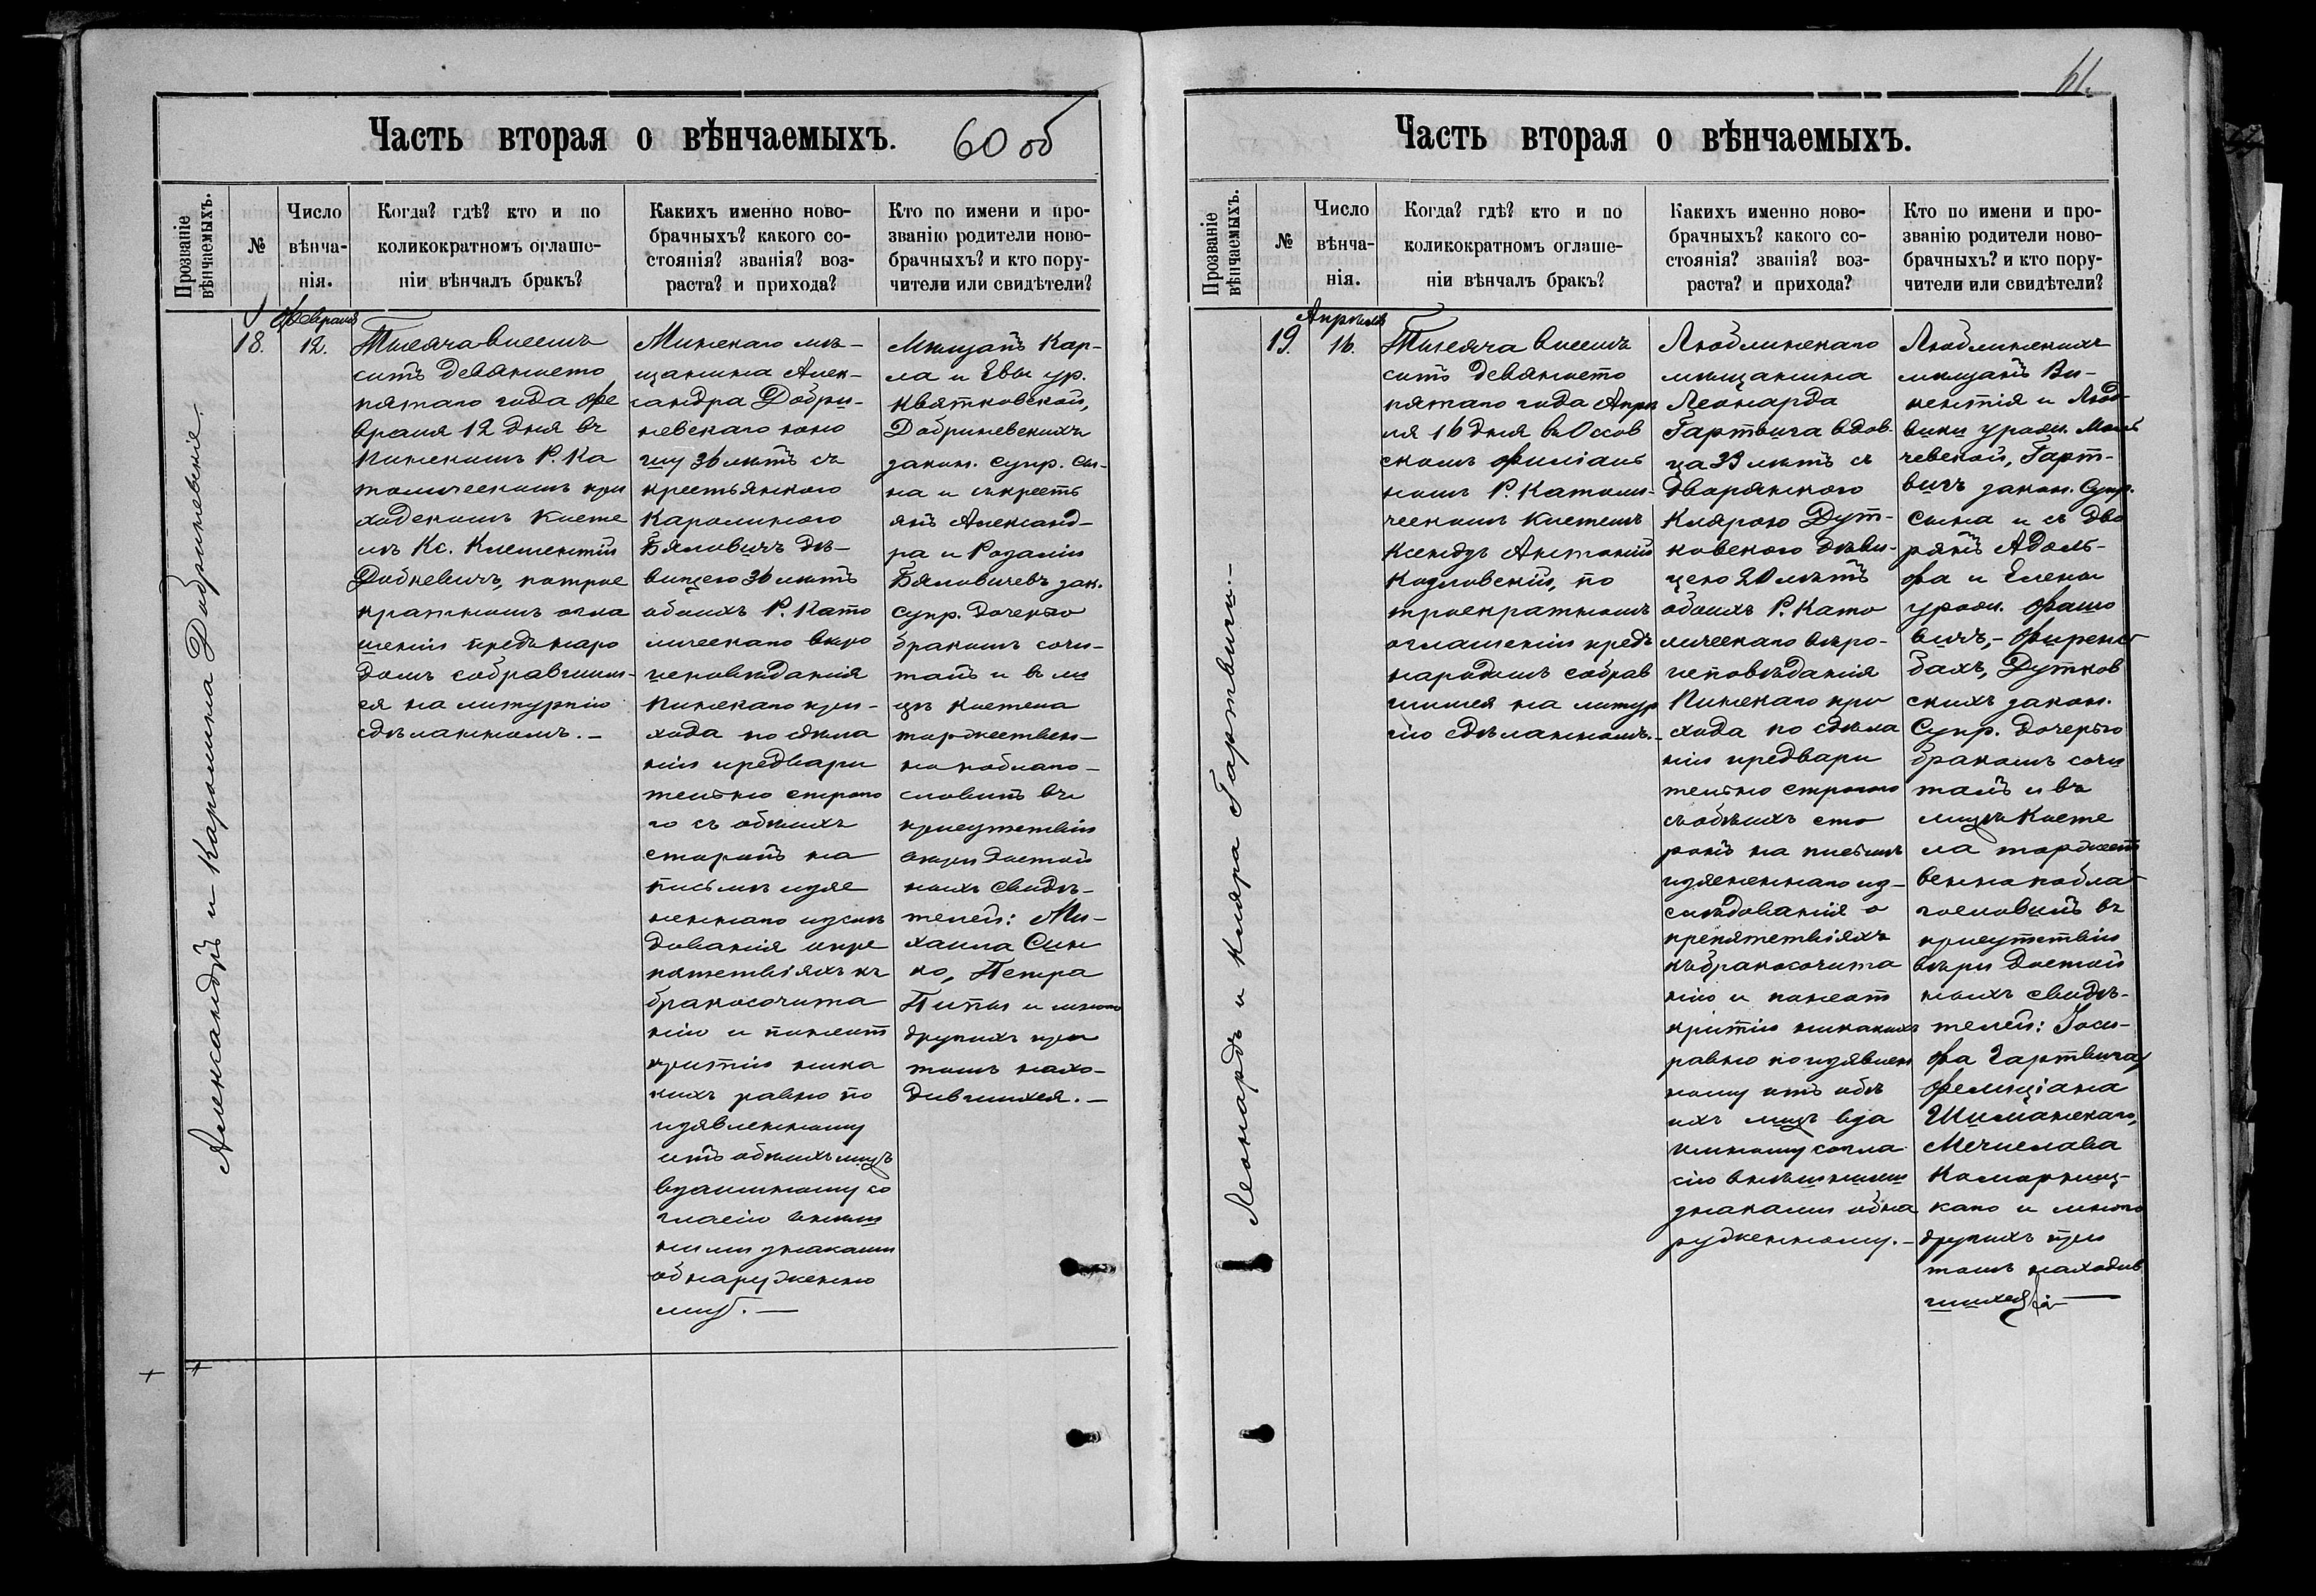 Часть вторая о вѣнчаемыхъ.
60 об
Прозваніе вѣнчаемыхъ.
№
Число вѣнча-нія.
Когда? гдѣ? кто и по
коликократномъ оглаше-
ніи вѣнчалъ бракъ?
Какихъ именно ново-
брачныхъ? какого со-
стоянія? званія? воз-
раста? и прихода?
Кто по имени и про-
званію родители ново-
брачныхъ? и кто пору-
чители или свидѣтели?
Александръ и Каролина Добриневскіе
18.
Февраля
12.
Тысяча восемь
сотъ девяносто
пятаго года Фе
враля 12 дня въ
Пинскомъ Р. Ка
толическомъ при
ходскомъ косте
лѣ Кс. Климентій
потрое
кратномъ огла
шеніи предъ наро
домъ собравшим-
ся на литургію
сдѣланномъ. —
Минскаго мѣ-
щанина Алек-
сандра Добри-
невскаго юно
шу 36 лѣтъ съ
крестьянкою
Каролиною
Бяловичъ дѣ-
вицею 36 лѣтъ
обоихъ Р. Като
лическаго вѣро
исповѣданія
Пинскаго при-
хода по сдѣла
ніи предвари
тельно строго
го съ обѣихъ
сторонъ на
письмѣ изъяс
неннаго изслѣ
дованія о пре
пятствіяхъ къ
бракосочета
нію и понеот
крытію ника
кихъ равно по
изъявленному
отъ обѣихъ лицъ
взаимному со
гласію внѣш
ними знаками
обнаруженно
му. —
Мѣщанъ Кар-
ла и Евы ур.
Квятковской,
Добриневскихъ
закон. супр. сы-
на и съ кресть
янъ Александ-
ра и Розаліи
Бяловичевъ зак.
супр. дочерью
бракомъ соче-
талъ и въ ли
цѣ костела
торжествен-
но поблаго-
словилъ въ
присутствіи
вѣри достой
ныхъ свидѣ-
телей: Ми-
хаила Син
ко, Петра
и много
другихъ при
томъ нахо-
дившихся. —
61.
Часть вторая о вѣнчаемыхъ.
Прозваніе вѣнчаемыхъ.
№
Число вѣнча-нія.
Когда? гдѣ? кто и по
коликократномъ оглаше-
ніи вѣнчалъ бракъ?
Какихъ именно ново-
брачныхъ? какого со-
стоянія? званія? воз-
раста? и прихода?
Кто по имени и про-
званію родители ново-
брачныхъ? и кто пору-
чители или свидѣтели?
Леонардъ и Кляра Гартвиги. —
19.
Апрѣля
16.
Тысяча восемь
сотъ девяносто
пятаго года Апрѣ
ля 16 дня въ Оссов
скомъ филіаль
номъ Р. Католи-
ческомъ костелѣ
Ксендзъ Антоній
Козловскій, по
троекратномъ
оглашеніи предъ
народомъ собрав
шимся на литур
гію сдѣланномъ. —
Люблинскаго
мѣщанина
Леонарда
Гартвига вдов-
ца 39 лѣтъ съ
дворянкою
Клярою Дут-
ковскою дѣви-
цею 20 лѣтъ
обоихъ Р. Като
лическаго вѣро-
исповѣданія
Пинскаго при
хода по сдѣла
ніи предвари
тельно строгого
съ обѣихъ сто
ронъ на письмѣ
изъясненнаго из-
слѣдованія о
препятствіяхъ
къ бракосочета
нію и понеот
крытію никакихъ
равно по изъявлен
ному отъ обѣ
ихъ лицъ вза
имному согла
сію внѣшними
знаками обна
руженному. —
Люблинскихъ
мѣщанъ Ви-
кентія и Люд-
вики урожд.
чевской, Гарт-
вигъ закон. Супр.
сына и съ дво
рянъ Адоль-
фа и Елены
урожд.
Дутков
скихъ закон.
Супр. дочерью
бракомъ соче
талъ и въ
лицѣ Косте
ла торжест
венно побла
гословилъ въ
присутствіи
вѣри достой
ныхъ свидѣ-
телей: Іоси-
фа Гартвига,
Фелиціана
Шиманскаго,
Мечислава
Коморниц-
каго и много
другихъ при
томъ находив
шихся. —